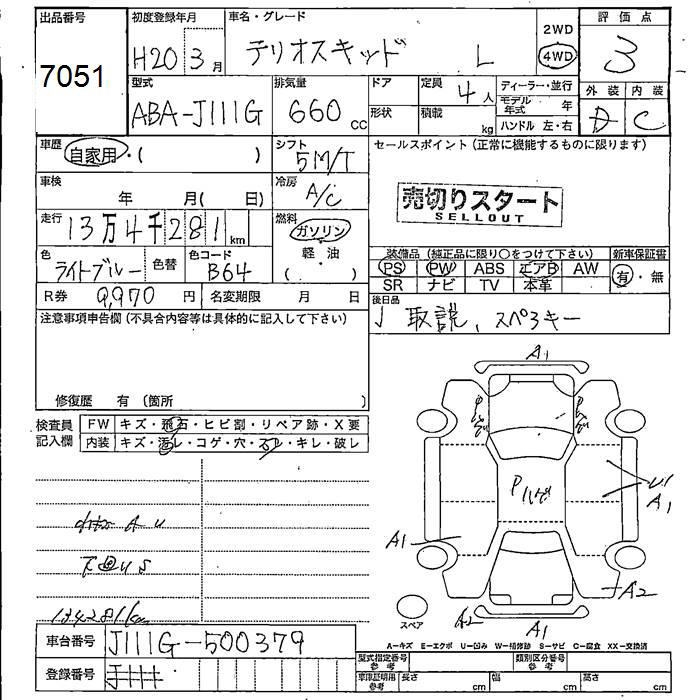 出品番号 初度登録年月 車名・グレード 2WD 評価点
7051 H20 3月 テリオスキッド L 4WD 3
型式 排気量 ドア 定員 4人 ディーラー・並行 外装 内装
ABA-J111G 660 cc 形状 積載 kg モデル年式 年 D C
ハンドル 左・右
車歴 自家用・( ) シフト 5M/T セールスポイント(正常に機能するものに限ります)
車検 年 月( 日) 冷房 A/C
売切りスタート
SELLOUT
走行 13万4千281km 燃料 ガソリン・軽・油( )
色 ライトブルー 色替 色コード B64
装備品(純正品に限り○をつけて下さい) 新車保証書
PS PW ABS エアB AW 有・無
SR ナビ TV 本革
R券 9,970円 名変期限 月 日
後日品
取説、スペアキー
注意事項申告欄(不具合内容等は具体的に記入して下さい)
修復歴 有(箇所 )
検査員記入欄 FW キズ・飛石・ヒビ割・リペア跡・X要
内装 キズ・汚レ・コゲ・穴・スレ・キレ・破レ
A1
Pハゲ
Pハゲ
Pハゲ
U1
A1
A1
A2
A2
A1
スペア
134281km
車台番号 J111G-500379
登録番号
A-キズ E-エクボ U-凹み W-補修跡 S-サビ C-腐食 XX-交換済
型式指定番号 参考 類別区分番号 参考
車庫証明用 参考 長さ cm 幅 cm 高さ cm